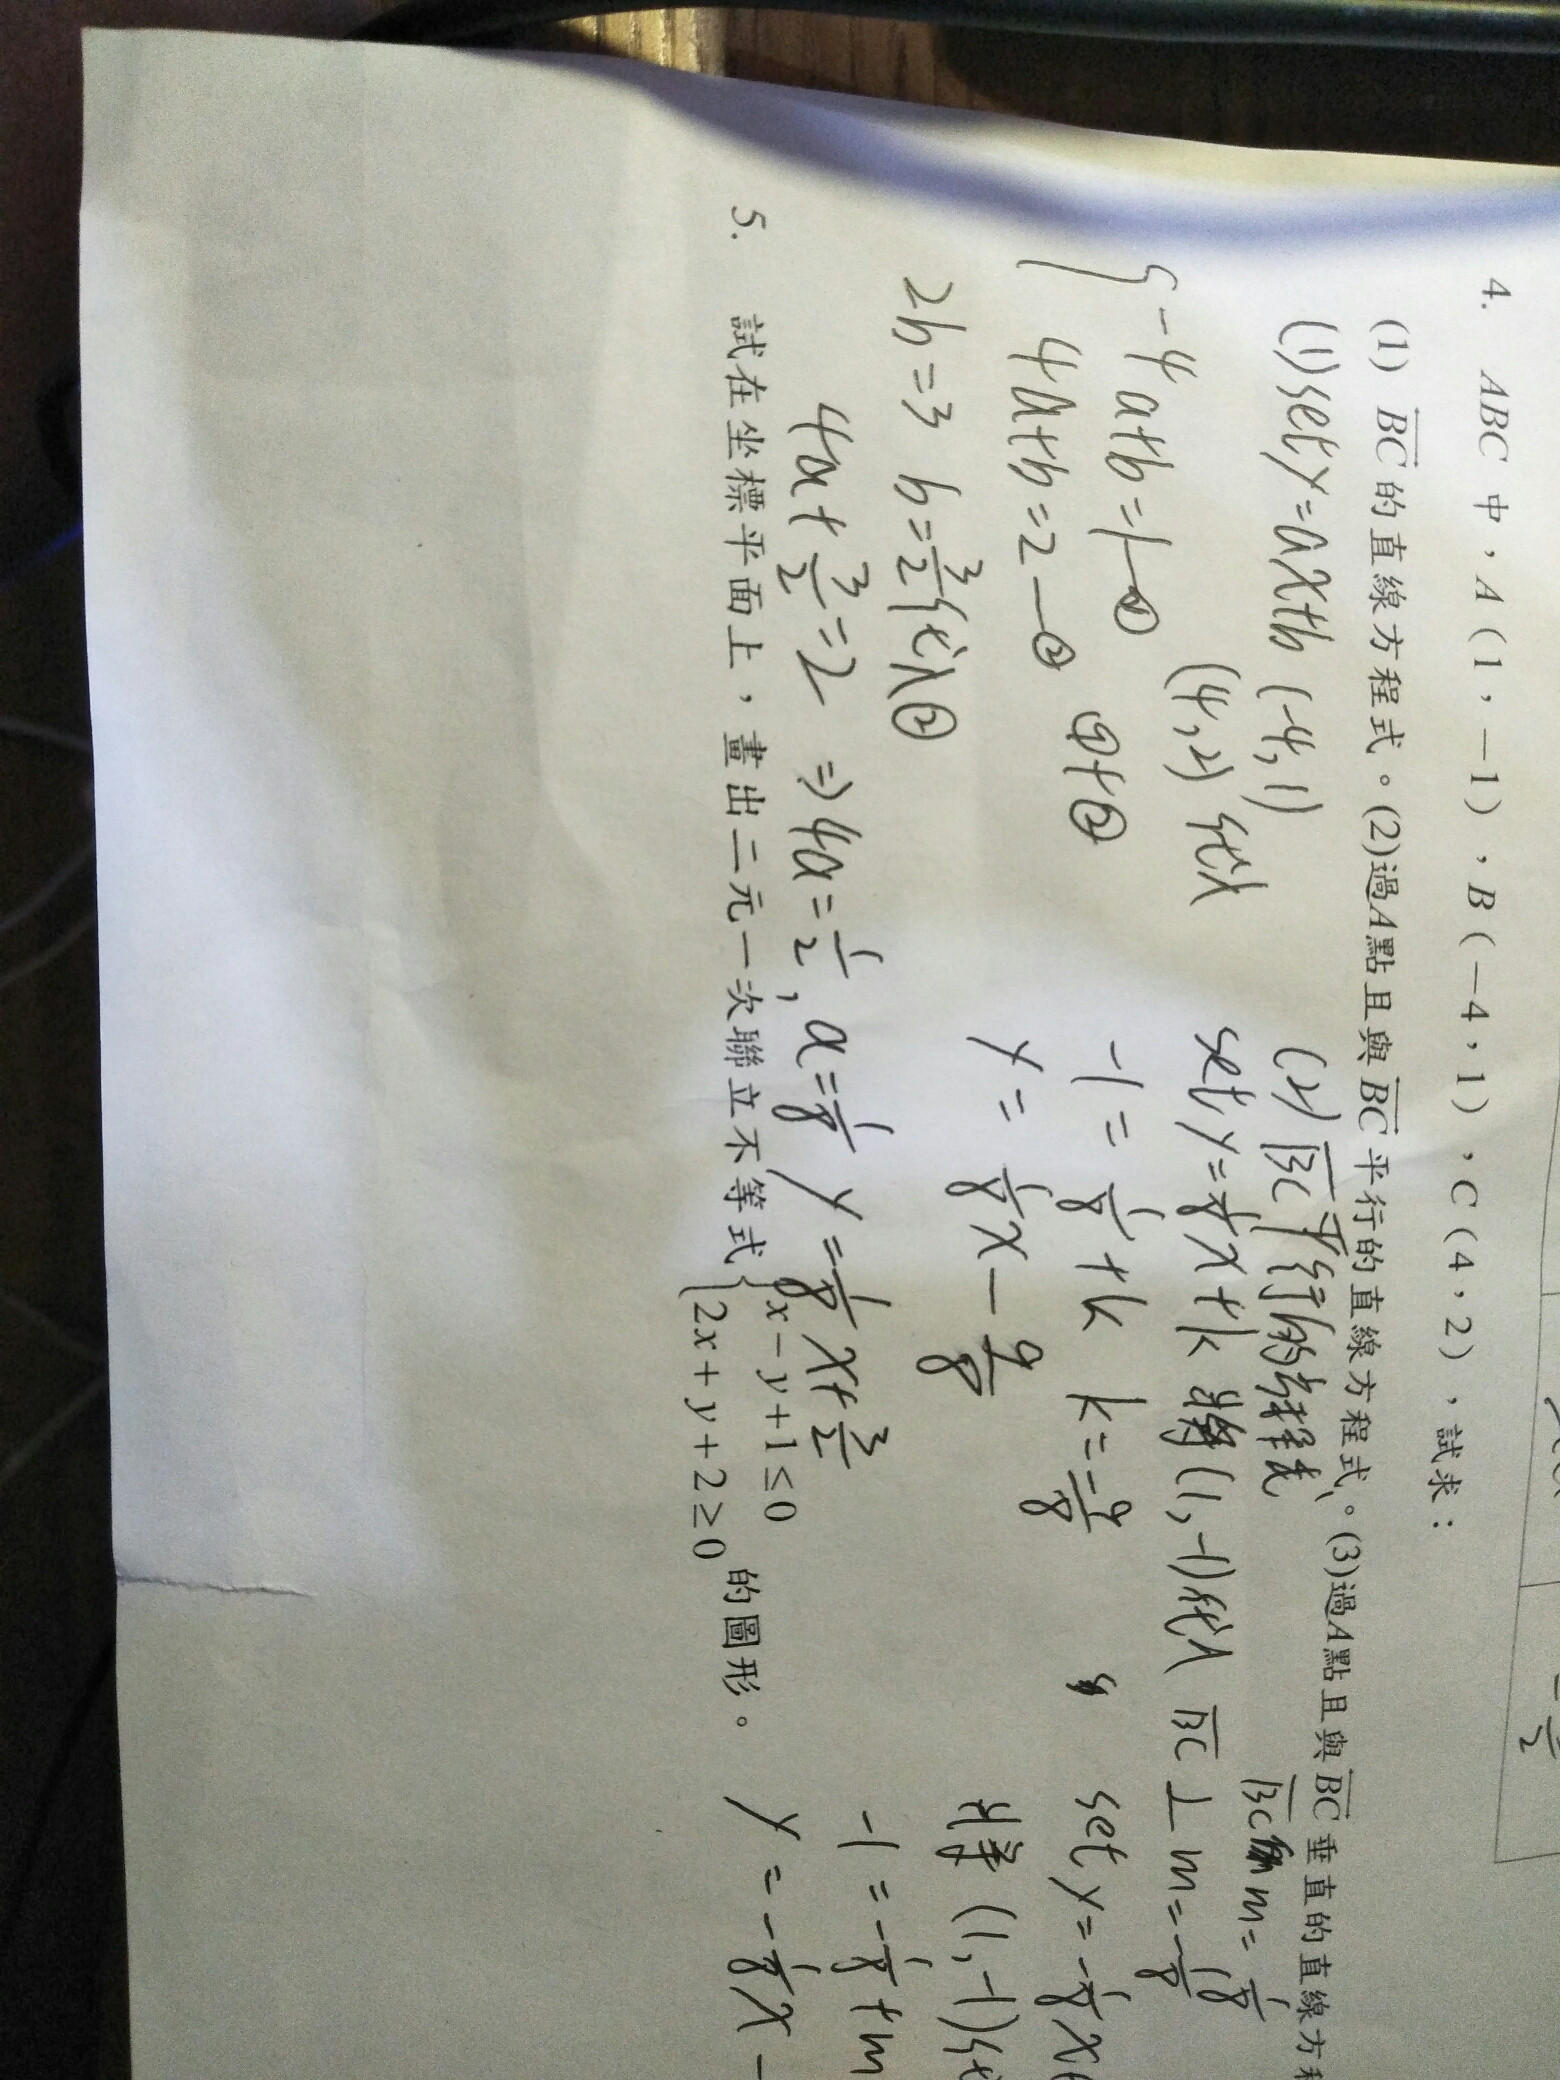 4. ABC 中，A（1，−1），B（−4，1），C（4，2），試求：
(1) BC 的直線方程式。(2)過A點且與BC平行的直線方程式。(3)過A點且與BC垂直的直線方程
(1) set y=ax+b (-4,1)
(4,2) 代入
{ -4a+b=1 —①
4a+b=2 —② ①+②
2b=3 b=3/2 代入②
4a+3/2=2 ⇒4a=1/2, a=1/8 y=1/8x+3/2
(2) BC 平行的方程式
set y=1/8x+k 將(1,-1)代入
-1=1/8+k k=-9/8
y=1/8x-9/8
BC m=1/8
BC⊥m=-1/8
set y=-1/8x+
將(1,-1)代
-1=-1/8+m
y=-1/8x-
5. 試在坐標平面上，畫出二元一次聯立不等式 { x−y+1≤0
2x+y+2≥0 的圖形。